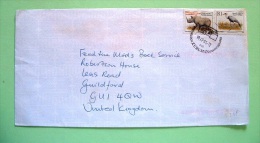 Feed the Minds Book Service
Robertson House
Leas Road
Guildford
GU1 4QW
United Kingdom